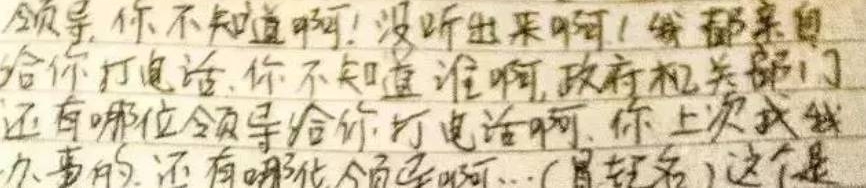 领导,你不知道啊!没听出来啊!我都亲自
给你打电话,你不知道谁啊,政府机关部门
还有哪位领导给你打电话啊,你上次找我
办事的,还有哪位领导啊…(冒姓名)这个是